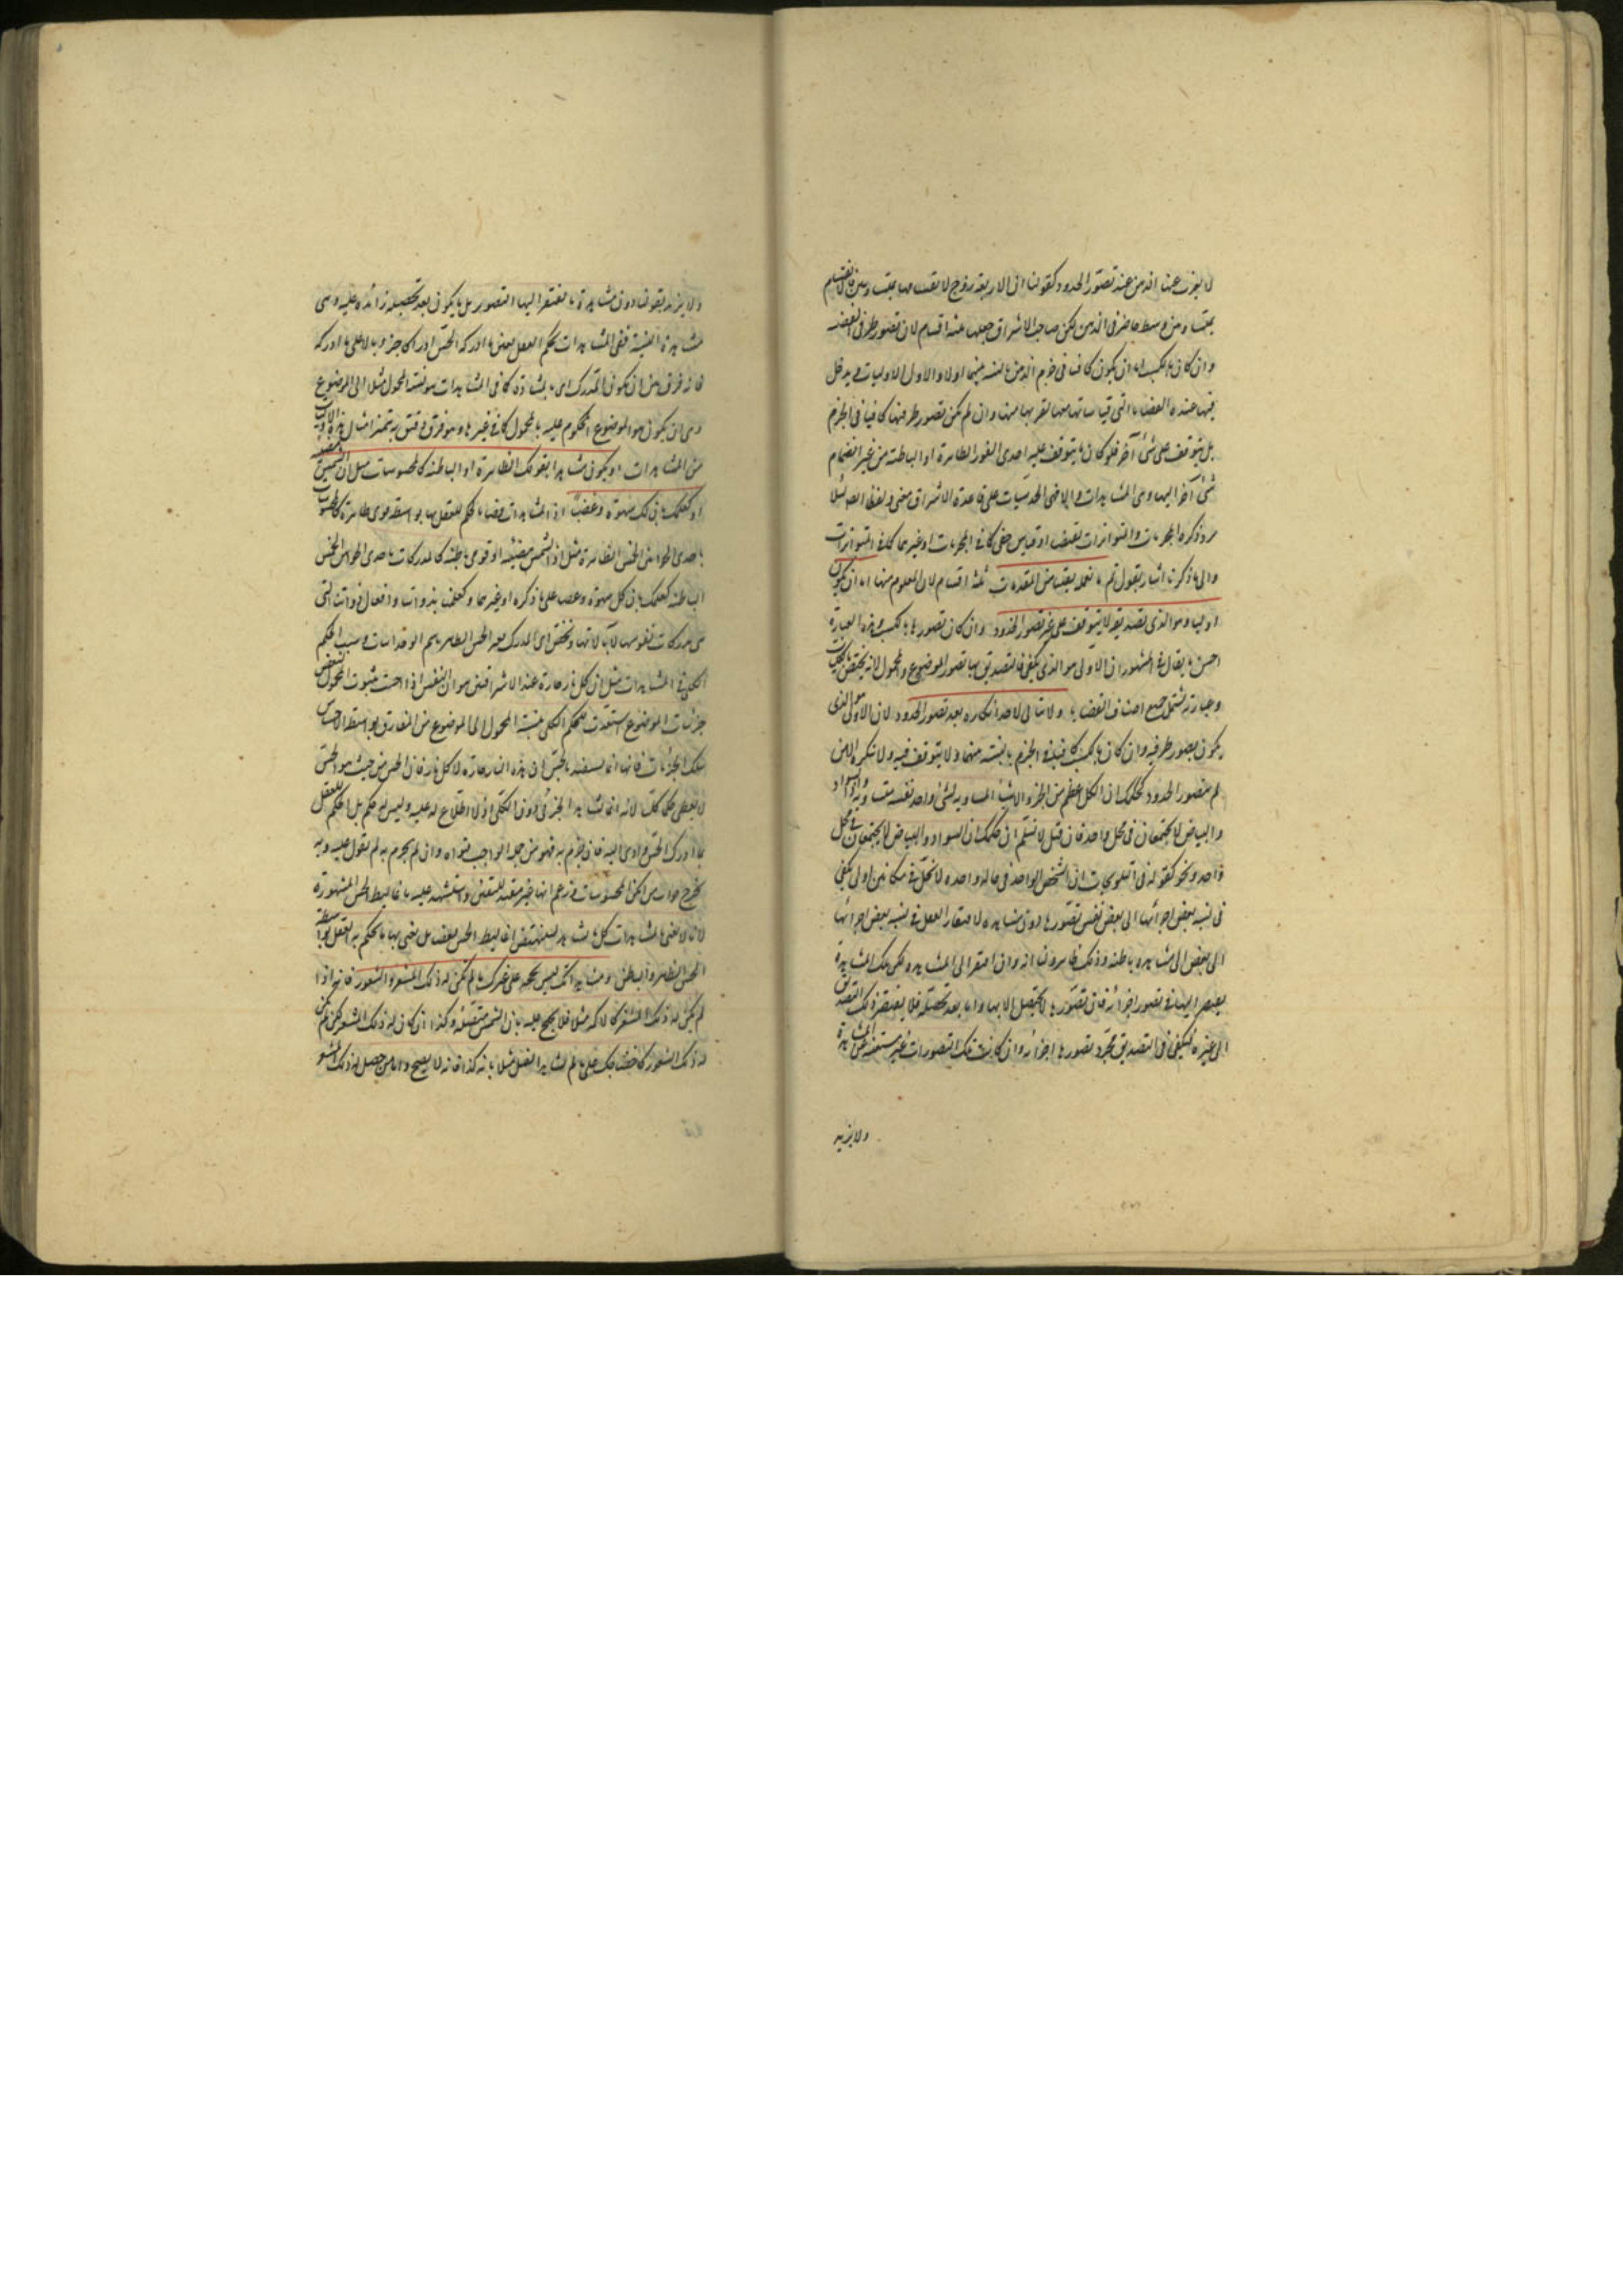 لا يعزب عنها الذهن عند تصور الحدود كقولنا ان الاربعة زوج لانقسامها بمتساويين فالانقسام
بمتساويين وسط حاضر في الذهن لكن صاحب الاشراق جعلها عنه اقسام لان تصور طرفي القضية
وان كان بالكسب اما ان يكون كافيا في جزم الذهن بالنسبة بينهما اولا والاول الاوليات ويدخل
فيها عنده القضايا التي قياساتها معها لقربها منها وان لم يكن تصور طرفيها كافيا في الجزم
بل يتوقف على شئ آخر فلو كان ما يتوقف عليه احدى القوى الظاهرة او الباطنة من غير انضمام
شئ آخر اليها وهى المشاهدات والا فهى الحدسيات على قاعدة الاشراق
ذكره المجربات والمتواترات لقياس خفى كما في المجربات او غيرهما كما في المتواترات
والى ما ذكرنا اشار بقوله ثم ما نعلمه يقينا من المقدمات ثلثة اقسام لان المعلوم منها اما ان يكون
اوليا وهو الذى تصديقه لا يتوقف على غير تصور الحدود وان كان تصورها بالكسب وهذه العبارة
احسن ما يقال في المشهور ان الاولى هو الذى يكفى في التصديق بها تصور الموضوع والمحمول لانه يختص بالحمليات
وعبارته يشتمل جميع اصناف القضايا ولا يتأتى لاحد انكاره بعد تصور الحدود لان الاولى هو الذى
يكون تصور طرفيه وان كان بالكسب كافيا في الجزم بالنسبة بينهما ولا يتوقف فيه ولا ينكره الا من
لم يتصور الحدود كحكمك ان الكل اعظم من الجزء والاشياء المساوية لشئ واحد بعينه متساوية وان السواد
والبياض لا يجتمعان في محل واحد فان قيل لا نسلم ان حكمك ان السواد والبياض لا يجتمعان في محل
واحد ونحو كقوله في التلويحات ان الشخص الواحد في حالة واحدة لا يحل في مكانين اولى يكفى
في نسبة بعض اجزائها الى بعض نفس تصورها دون مشاهدة لافتقار العقل في نسبة بعض اجزائها
الى بعض الى مشاهدة باطنة وذلك ظاهر قلنا انه وان افتقر الى المشاهدة ولكن تلك المشاهدة
يفتقر اليها في تصور اجزائه فان تصورها لا يحصل الا بها واما بعد تحصيله فلا يفتقر ذلك التصديق
الى غيره فيكفى في التصديق مجرد تصورها اجزائه وان كانت تلك التصورات غير مستغنية عن المشاهدة
ولا يزيد
ولا يزيد بقولنا دون مشاهدة ما يفتقر اليها التصور بل ما يكون بعد تحصيله زائدة عليه وهى
مشاهدة النسبة ففى المشاهدات يحكم العقل بعين ما ادركه الحس ادراكا جزويا لا على ما ادركه
فانه فرق بين ان يكون المدرك اى ما يشاهده كما في المشاهدات هو نسبة المحمول مثلا الى الموضوع
وبين ان يكون هو الموضوع المحكوم عليه بالمحمول كما في غيرها وهو فرق دقيق به يتميز امثال هذه الاوليات
من المشاهدات او يكون مشاهدا بقوتك الظاهرة او الباطنة كالمحسوسات مثل ان الشمس مضيئة
او كعلمك بان لك شهوة وغضبا اذ المشاهدات قضايا يحكم للعقل بها بواسطة قوى ظاهرة كالمحسوسات
باحدى الحواس الخمس الظاهرة مثل ان الشمس مضيئة او قوى باطنة كالمدركات باحدى الحواس الخمس
الباطنة كعلمك بان لك شهوة وغضبا على ما ذكره او غيرهما وكعلمنا بذواتنا وافعال ذواتنا التى
هى مدركات نفوسها لا بآلاتها ويختص اى المدرك بغير الحس الظاهر باسم الوجدانيات وسبب الحكم
الكلى في المشاهدات مثل ان كل نار حارة عند الاشراقيين هو ان النفس اذا احست بثبوت المحمول لبعض
جزئيات الموضوع استعدت للحكم الكلى بنسبة المحمول الى الموضوع من المفارق بواسطة الاحساس
بتلك الجزئيات فانها انما يستفيد بالحس ان هذه النار حارة لا كل نار فان الحس من حيث هو الحس
لا يعطى حكما كليا لانه انما يشاهد الجزئى دون الكلى اذ لا اطلاع له عليه وليس له حكم بل الحكم للعقل
بما ادرك الحس وادى اليه فان جزم به فهو من جملة الواجب قبوله وان لم يجزم به لم يعول عليه وبه
يخرج جواب من انكر المحسوسات وزعم انها غير مفيد لليقين واستشهد عليه باغاليط الحس المشهورة
لانا لا نعنى بالمشاهدات كل ما يشاهد لينتقض باغاليط الحس بعضها بل نعنى بها ما يحكم به العقل بواسطة
الحس الظاهر والباطن ومشاهداتك ليس بحجة على غيرك ما لم يكن له ذلك المشعر والشعور فانه اذا
لم يكن له ذلك المشعر كالاكمه مثلا فلا يحتج عليه بان الشمس مضيئة وكذا ان كان له ذلك المشعر لكن لم يكن
له ذلك الشعور كاحتجاجك على من لم يشاهد الفيل مثلا بانه كذا فانه لا يصح واما من حصل له ذلك المشعر